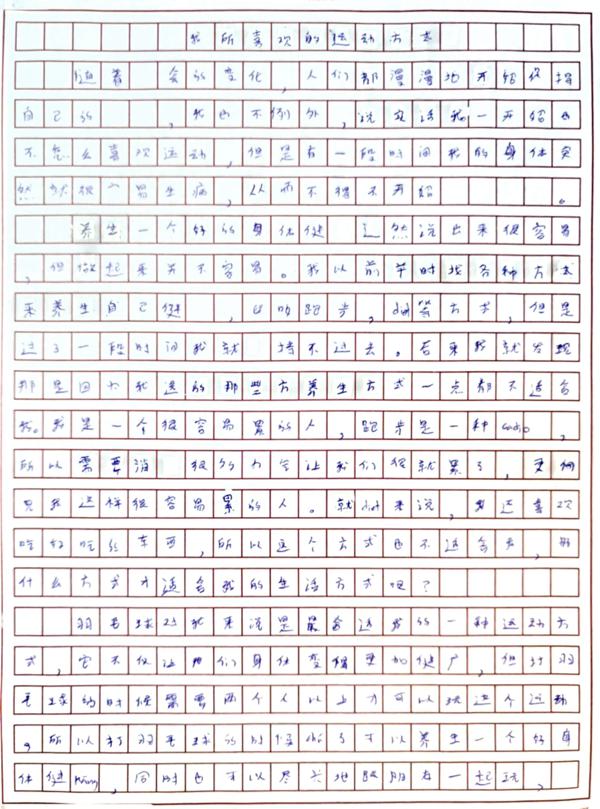 我所喜欢的运动方式
随着 会的变化，人们都漫漫地开始保持
自己的 ，我也不例外，说实话我一开始也
不怎么喜欢运动，但是有一段时间我的身体突
然就很容易生病，从而不得不开始 。
养生一个好的身体健 虽然说出来很容易
，但做起来并不容易。我以前年时找各种方式
来养生自己健 ，比如跑步，diet等方式，但是
过了一段时间我就 持不过去。后来我就发现
那是因为我选的那些方养生方式一点都不适合
我。我是一个很容易累的人，跑步是一种cadio，
所以需要消 很多力会让我们很就累了，更何
况我这样很容易累的人。就diet来说，我还喜欢
吃好吃的东西，所以这个方式也不适合我，那
什么方式才适合我的生活方式呢？
羽毛球对我来说是最合适我的一种运动方
式，它不仅让我们身体变得更加健广，但打羽
毛球的时候需要两个人以上才可以玩这个运动
。所以打羽毛球的时候 了可以养生一个好身
体健 ，同时也可以尽兴地跟朋友一起玩，